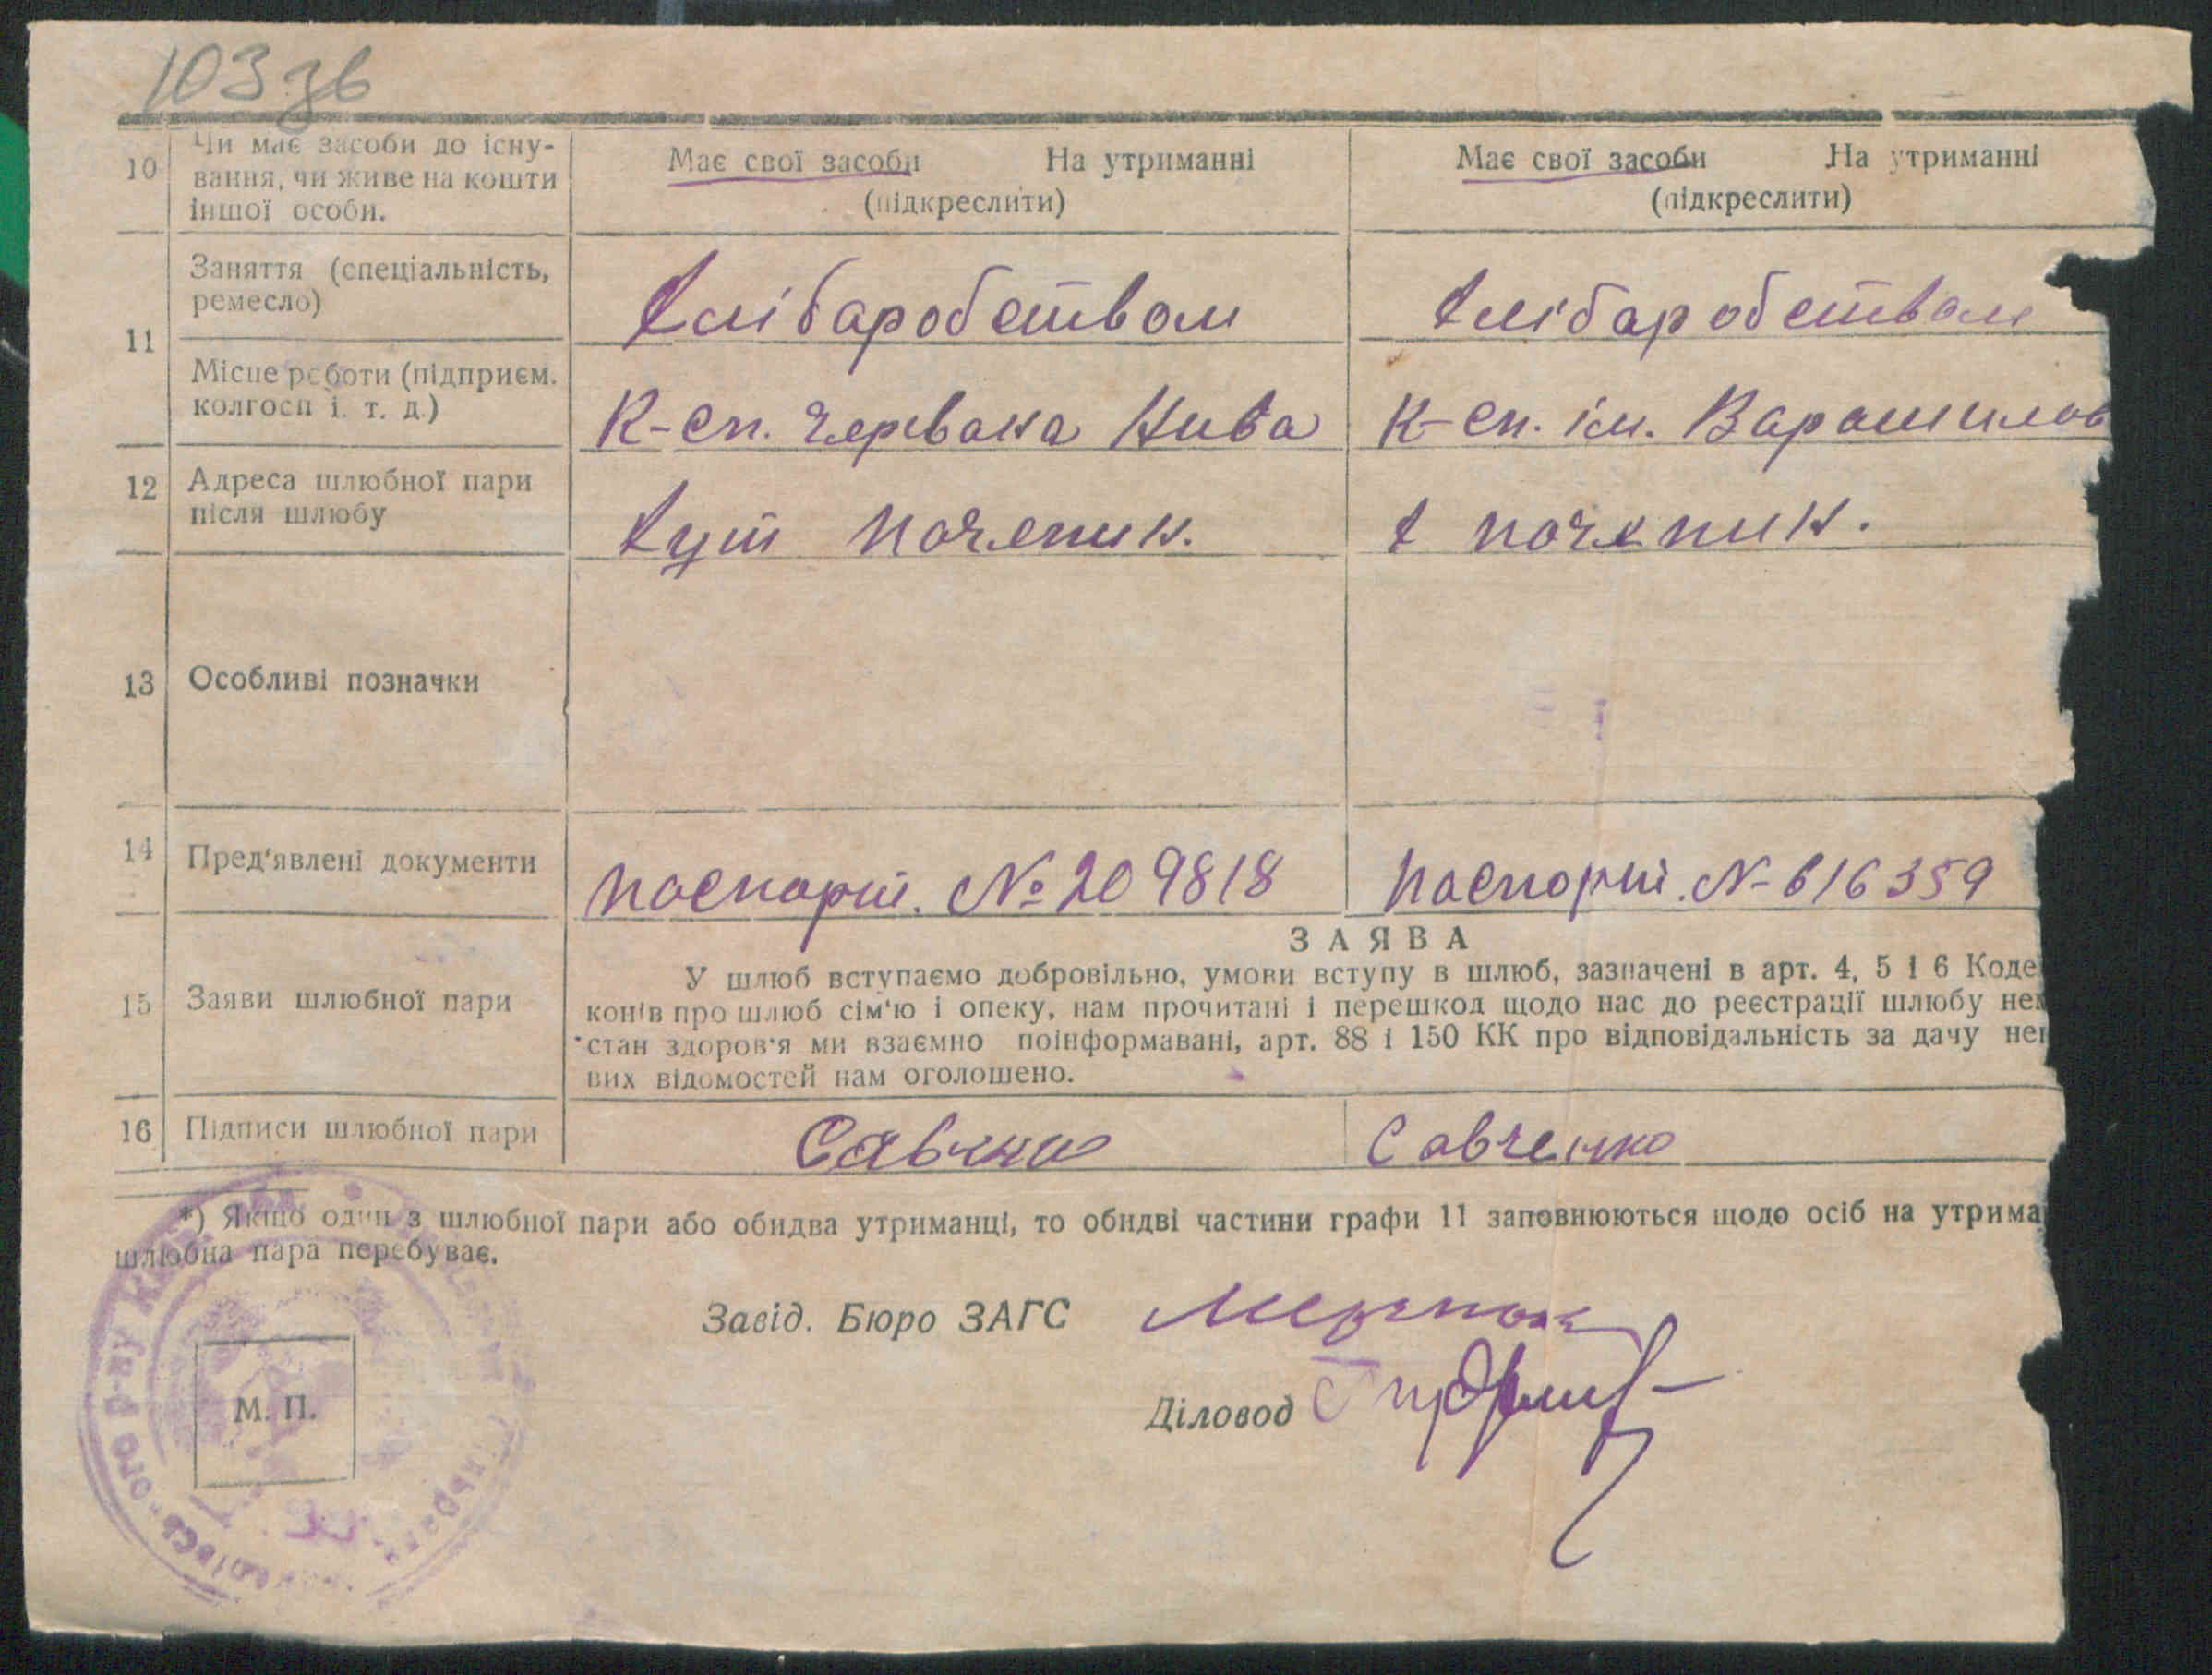 103 зв
10 Чи має засоби до існу-
вання, чи живе на кошти
іншої особи.
Має свої засоби На утриманні
(підкреслити)
Має свої засоби На утриманні
(підкреслити)
11
Заняття (спеціальність,
ремесло)
Хлібаробством
Хлібаробством
Місце роботи (підприєм.
колгосп і. т. д.)
К-сп. Червона Нива
К-сп. ім. Варашилов
12 Адреса шлюбної пари
після шлюбу
Хут Почепин.
Х Почепин.
13 Особливі позначки
14 Пред'явлені документи
Паспорт. № 209818
Паспорт. N- 616359
ЗАЯВА
15 Заяви шлюбної пари
У шлюб вступаємо добровільно, умови вступу в шлюб, зазначені в арт. 4, 5 і 6 Коде
конів про шлюб сім'ю і опеку, нам прочитані і перешкод щодо нас до реєстрації шлюбу нем
стан здоров'я ми взаємно поінформавані, арт. 88 і 150 КК про відповідальність за дачу неп
вих відомостей нам оголошено.
16 Підписи шлюбної пари
Савченко
*) Якщо один з шлюбної пари або обидва утриманці, то обидві частини графи 11 заповнюються щодо осіб на утрима
шлюбна пара перебуває.
Завід. Бюро ЗАГС
М. П.
Діловод